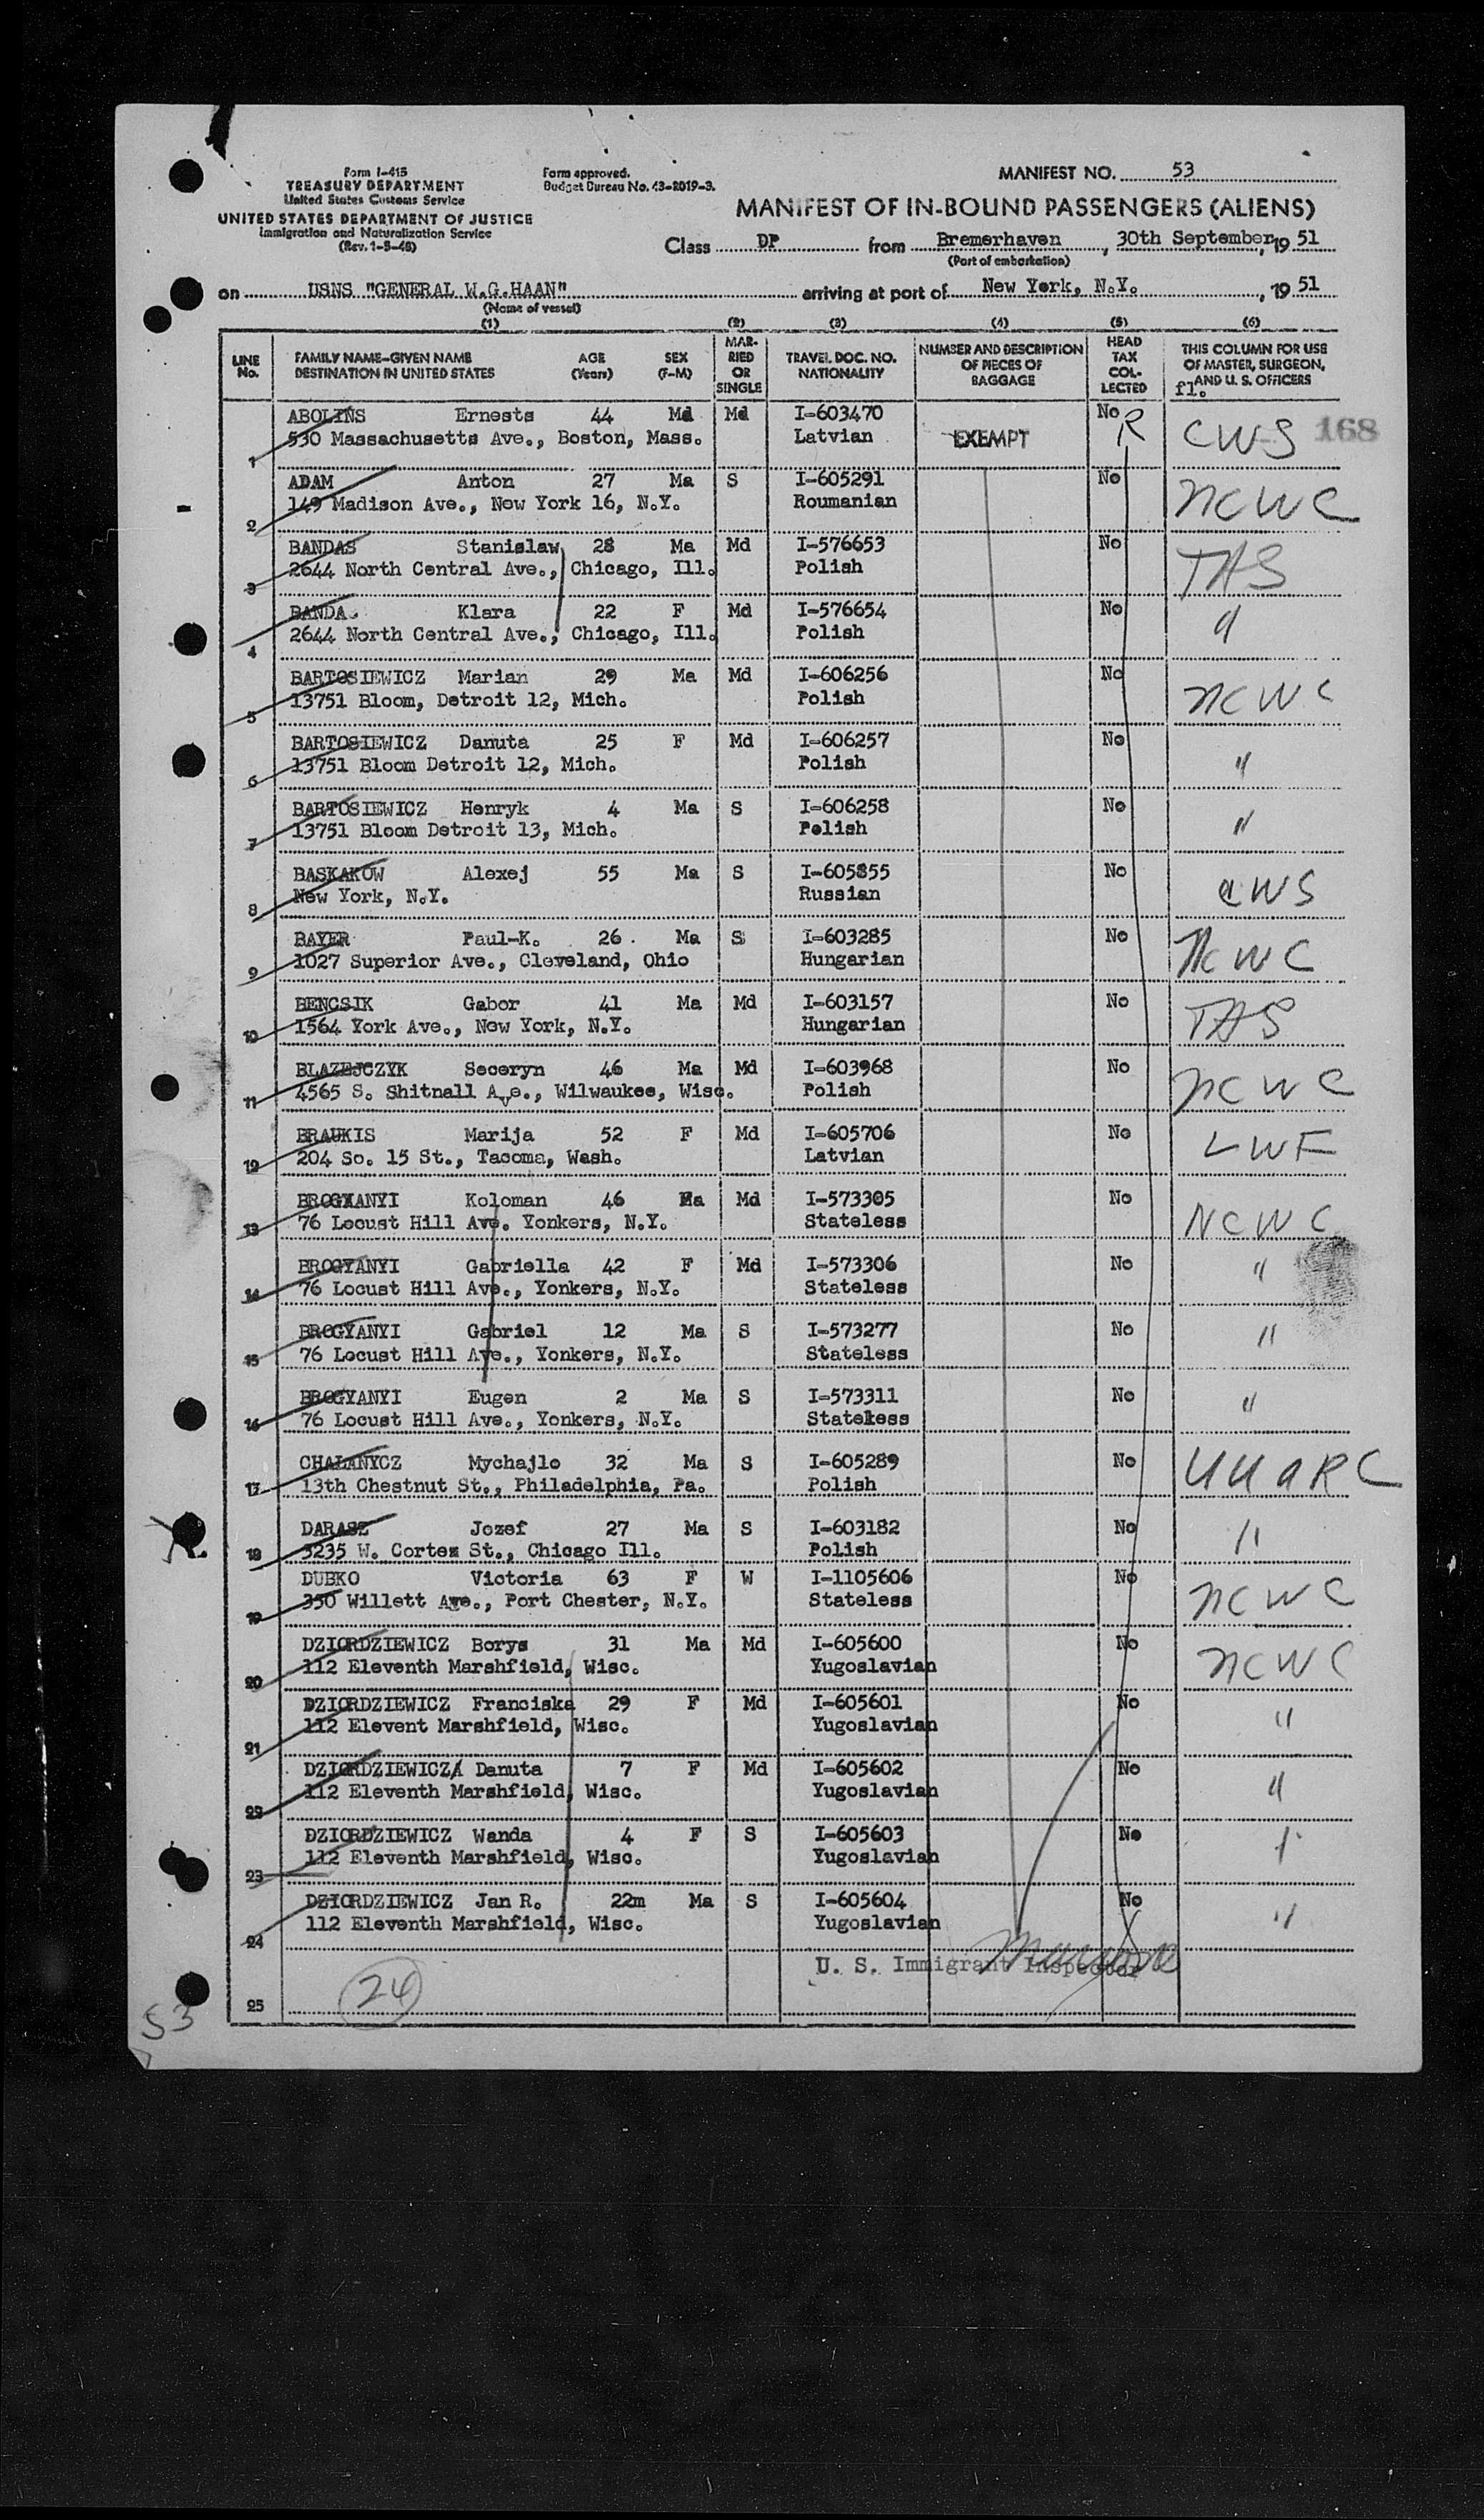 Form I-415
TREASURY DEPARTMENT
United States Customs Service
UNITED STATES DEPARTMENT OF JUSTICE
Immigration and Naturalization Service
(Rev. 1-5-48)
Form approved.
Budget Bureau No. 43-R019-3.
MANIFEST NO. 53
MANIFEST OF IN-BOUND PASSENGERS (ALIENS)
Class DP from Bremerhaven, 30th September, 19 51
(Port of embarkation)
on USNS "GENERAL W.G.HAAN" arriving at port of New York, N.Y., 19 51
(Name of vessel)
(1) (2) (3) (4) (5) (6)
LINE No. FAMILY NAME-GIVEN NAME DESTINATION IN UNITED STATES AGE (Years) SEX (F-M) MARRIED OR SINGLE TRAVEL DOC. NO. NATIONALITY NUMBER AND DESCRIPTION OF PIECES OF BAGGAGE HEAD TAX COLLECTED THIS COLUMN FOR USE OF MASTER, SURGEON, AND U. S. OFFICERS
fl.
ABOLINS Ernests 44 Md Md I-603470 No R CWS 168
1 530 Massachusetts Ave., Boston, Mass. Latvian EXEMPT
ADAM Anton 27 Ma S I-605291 No NCWC
2 149 Madison Ave., New York 16, N.Y. Roumanian
BANDAS Stanislaw 28 Ma Md I-576653 No TAS
3 2644 North Central Ave., Chicago, Ill. Polish
BANDA Klara 22 F Md I-576654 No "
4 2644 North Central Ave., Chicago, Ill. Polish
BARTOSIEWICZ Marian 29 Ma Md I-606256 No NCWC
5 13751 Bloom, Detroit 12, Mich. Polish
BARTOSIEWICZ Danuta 25 F Md I-606257 No "
6 13751 Bloom Detroit 12, Mich. Polish
BARTOSIEWICZ Henryk 4 Ma S I-606258 No "
7 13751 Bloom Detroit 13, Mich. Polish
BASKAKOW Alexej 55 Ma S I-605855 No CWS
8 New York, N.Y. Russian
BAYER Paul-K. 26 Ma S I-603285 No NCWC
9 1027 Superior Ave., Cleveland, Ohio Hungarian
BENCSIK Gabor 41 Ma Md I-603157 No TAS
10 1564 York Ave., New York, N.Y. Hungarian
BLAZEJCZYK Seceryn 46 Ma Md I-603968 No NCWC
11 4565 S. Shitnall Ave., Wilwaukee, Wisc. Polish
BRAUKIS Marija 52 F Md I-605706 No LWF
12 204 So. 15 St., Tacoma, Wash. Latvian
BROGYANYI Koloman 46 Ma Md I-573305 No NCWC
13 76 Locust Hill Ave. Yonkers, N.Y. Stateless
BROGYANYI Gabriella 42 F Md I-573306 No "
14 76 Locust Hill Ave., Yonkers, N.Y. Stateless
BROGYANYI Gabriel 12 Ma S I-573277 No "
15 76 Locust Hill Ave., Yonkers, N.Y. Stateless
BROGYANYI Eugen 2 Ma S I-573311 No "
16 76 Locust Hill Ave., Yonkers, N.Y. Statekess
CHALANYCZ Mychajlo 32 Ma S I-605289 No UUARC
17 13th Chestnut St., Philadelphia, Pa. Polish
DARASZ Jozef 27 Ma S I-603182 No "
18 3235 W. Cortez St., Chicago Ill. Polish
DUBKO Victoria 63 F W I-1105606 No NCWC
19 350 Willett Ave., Port Chester, N.Y. Stateless
DZIORDZIEWICZ Borys 31 Ma Md I-605600 No NCWC
20 112 Eleventh Marshfield, Wisc. Yugoslavian
DZIORDZIEWICZ Franciska 29 F Md I-605601 No "
21 112 Elevent Marshfield, Wisc. Yugoslavian
DZIORDZIEWICZ Danuta 7 F Md I-605602 No "
22 112 Eleventh Marshfield, Wisc. Yugoslavian
DZIORDZIEWICZ Wanda 4 F S I-605603 No "
23 112 Eleventh Marshfield, Wisc. Yugoslavian
DZIORDZIEWICZ Jan R. 22m Ma S I-605604 No "
24 112 Eleventh Marshfield, Wisc. Yugoslavian
U. S. Immigrant Inspector
25 24
53